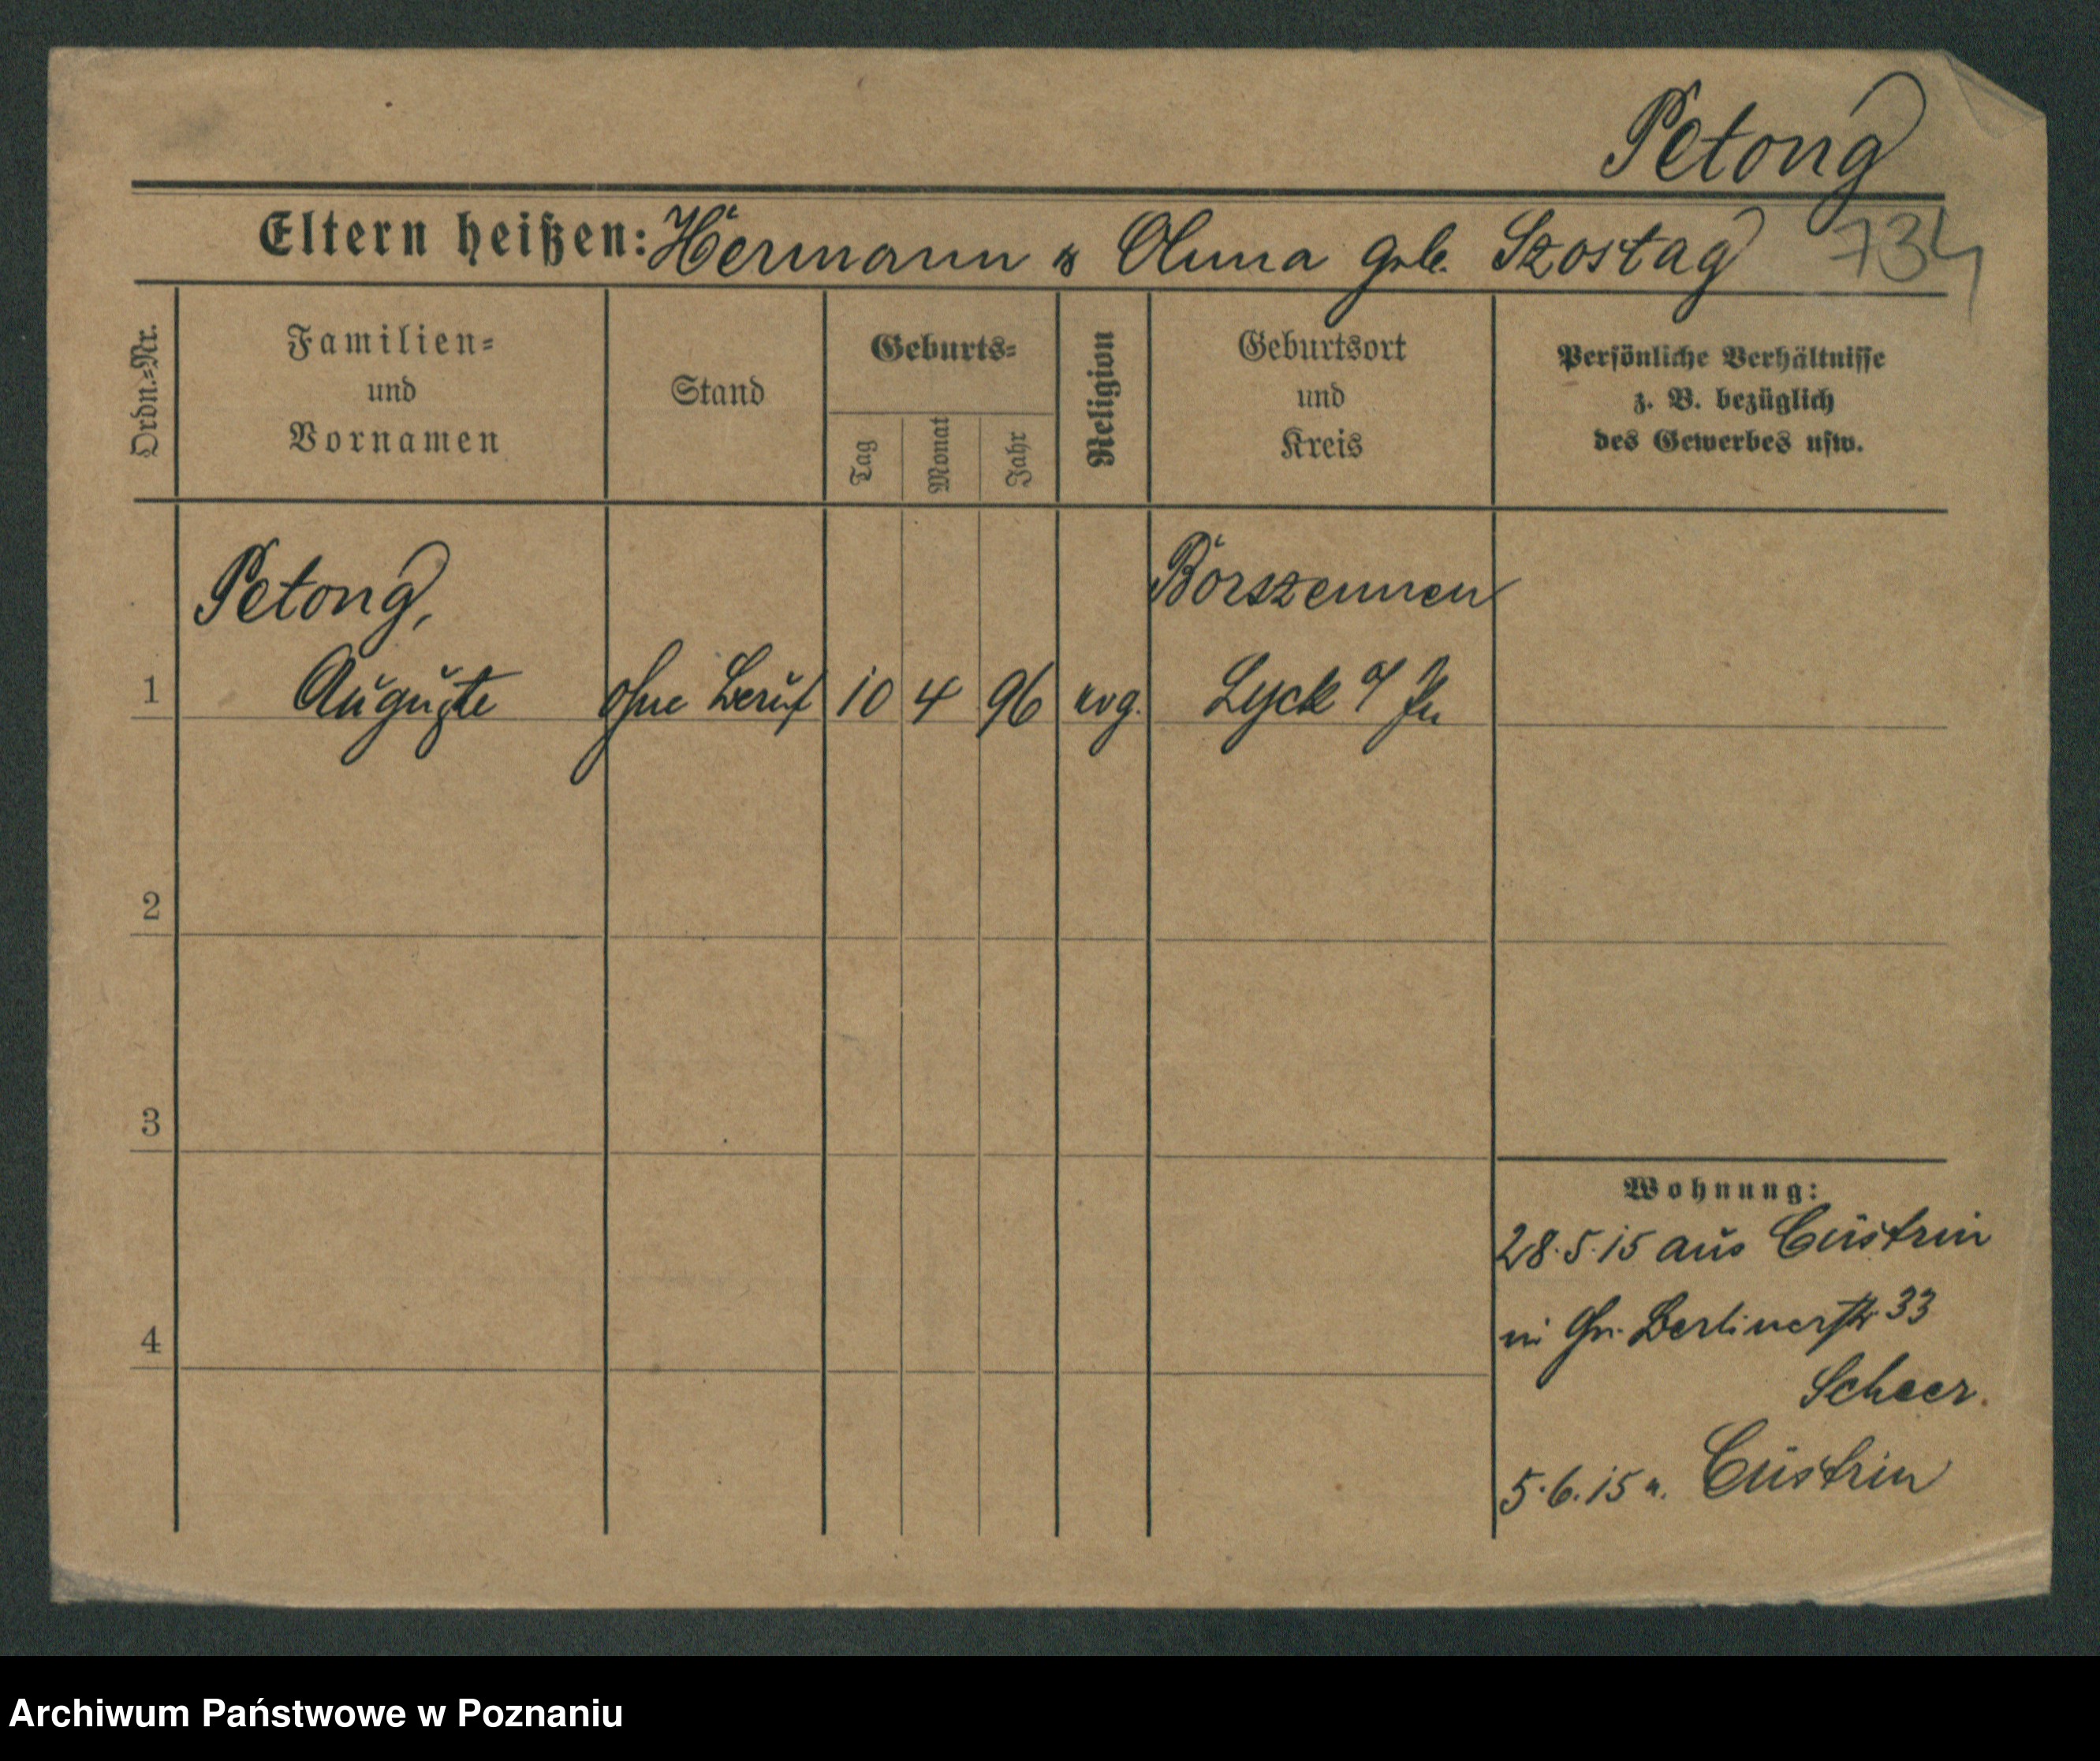 Petong
Eltern heißen: Hermann & Anna geb. Szostag 734
Ordn.=Nr.
Familien=
und
Vornamen
Stand
Geburts=
Tag
Monat
Jahr
Religion
Geburtsort
und
Kreis
Persönliche Verhältnisse
z. B. bezüglich
des Gewerbes usw.
Petong, Borszennen
1 Auguste ohne Beruf 10 4 96 evg. Lyck
2
3
4
Wohnung:
28.5.15 aus Cüstrin
in Gr. Berlinerstr 33
Scheer.
5.6.15 n. Cüstrin
Archiwum Państwowe w Poznaniu